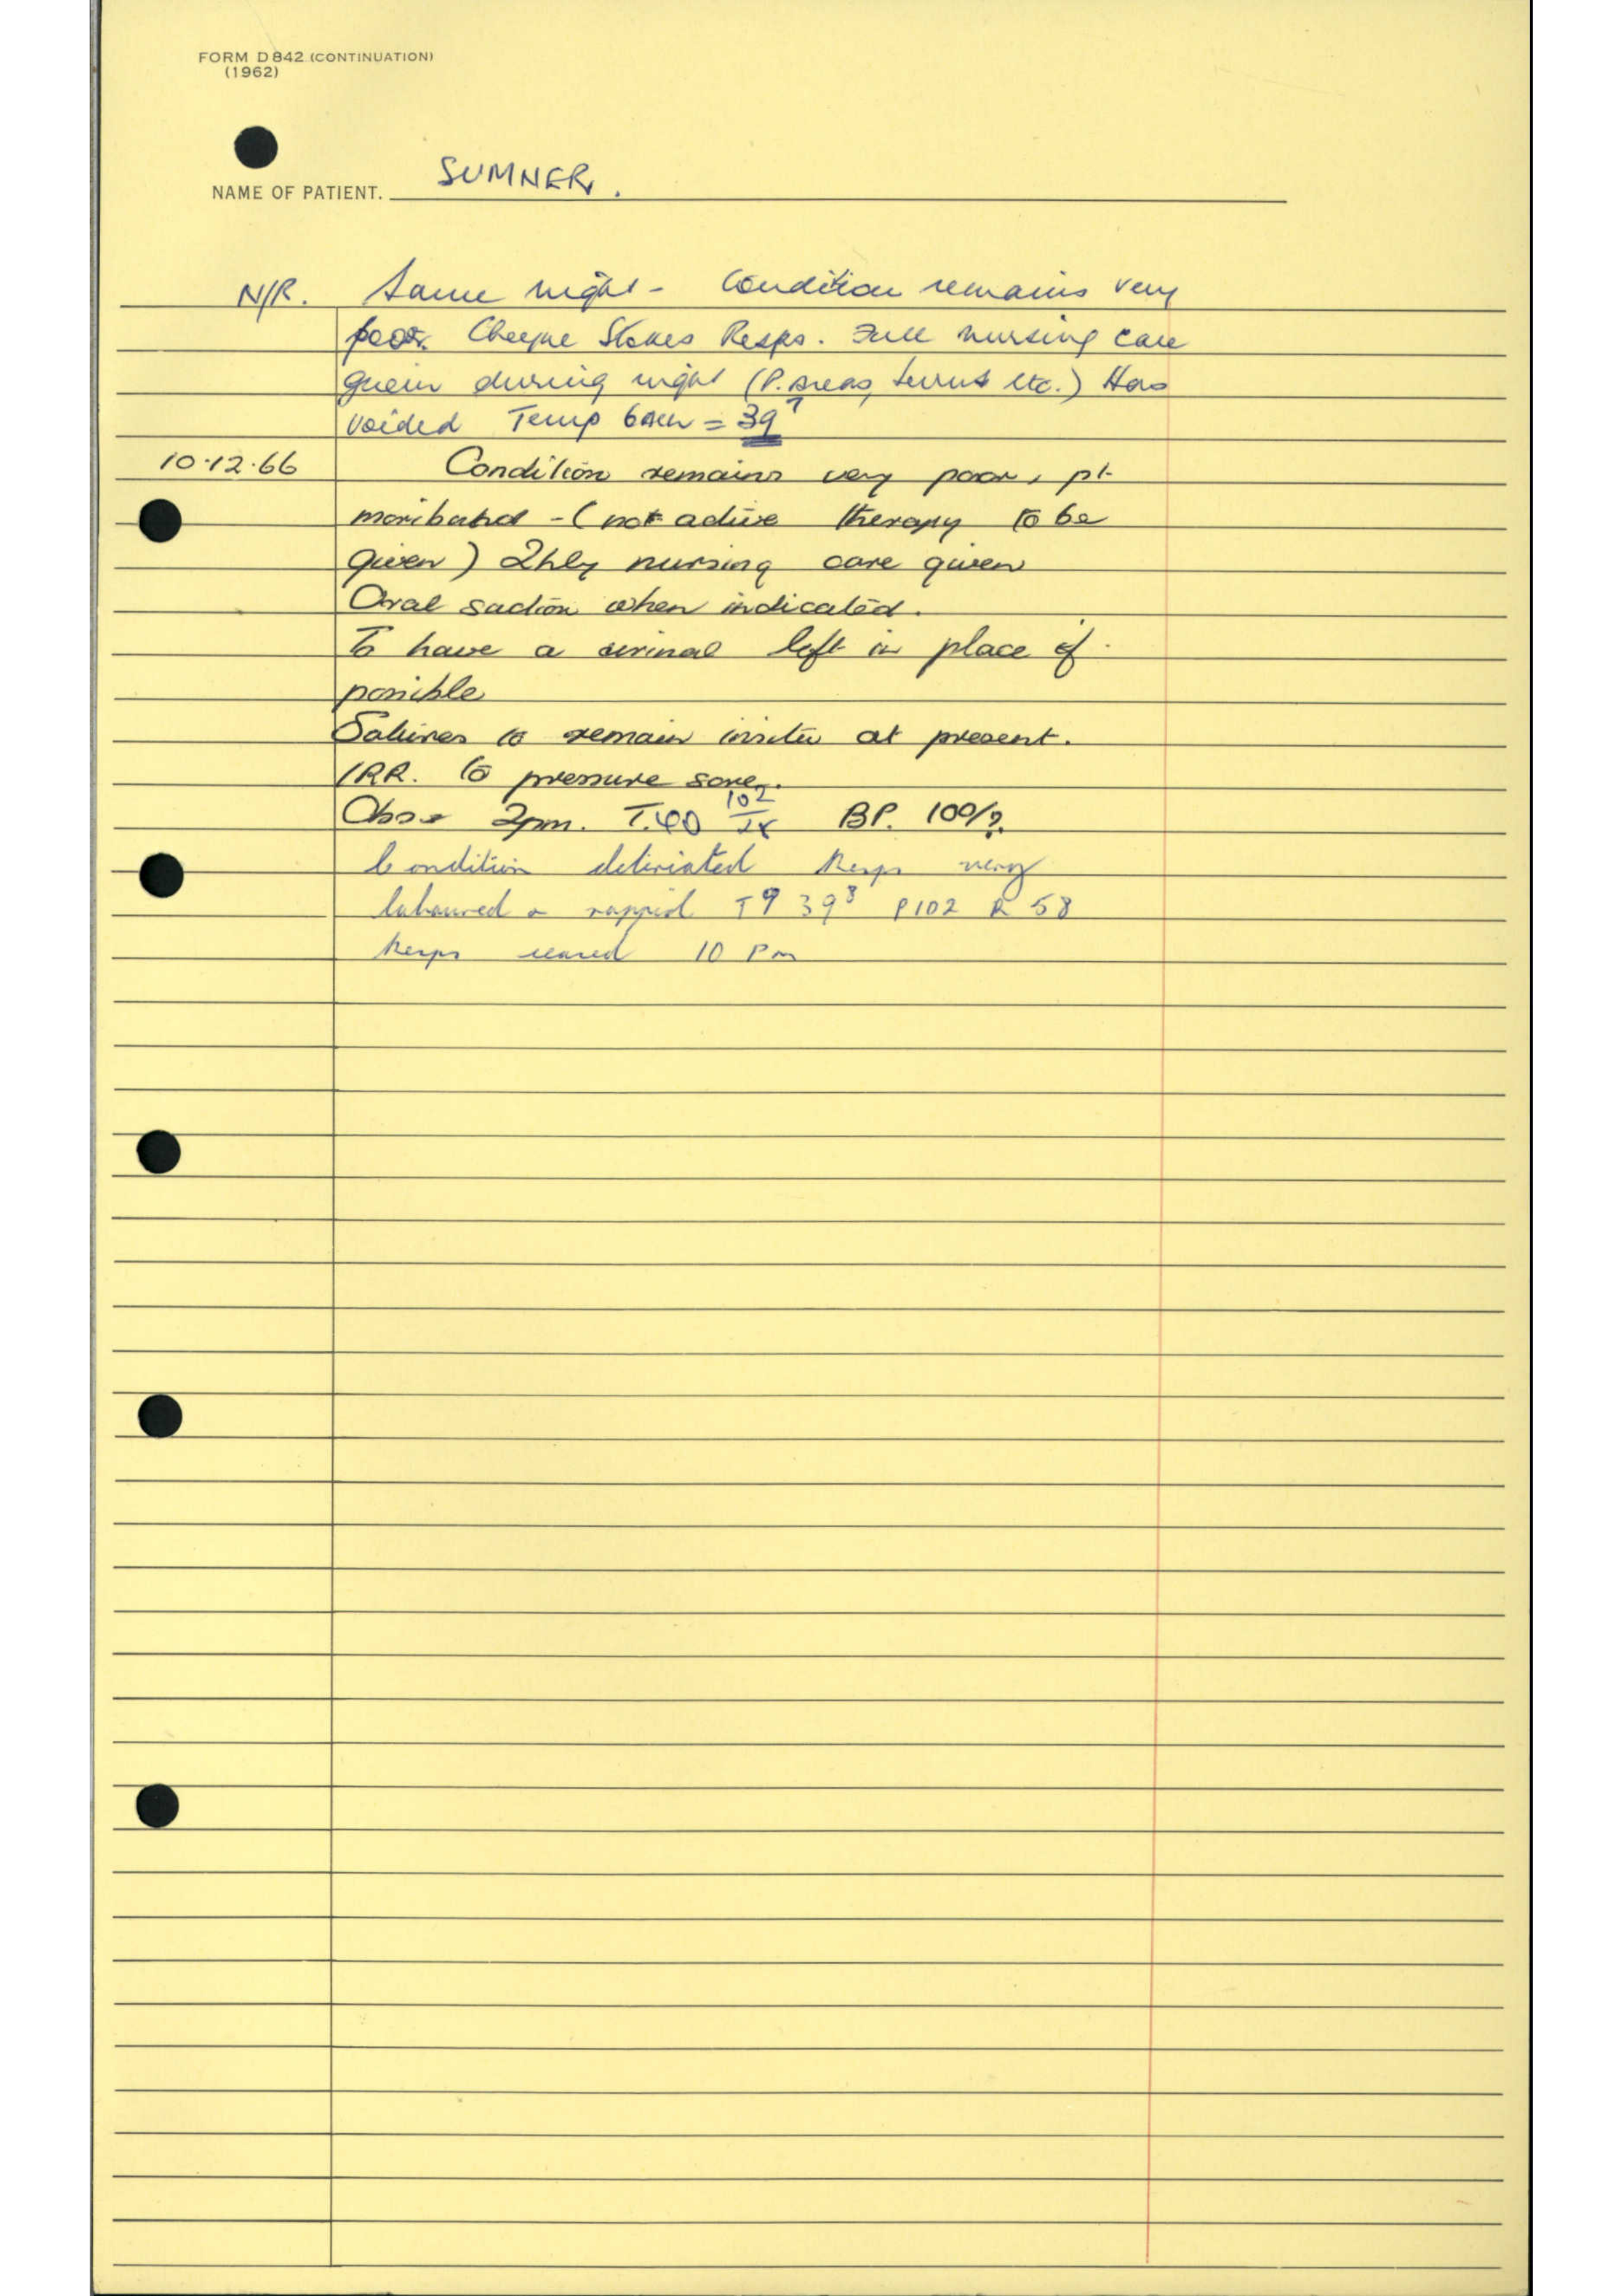 FORM D 842 (CONTINUATION)
(1962)
NAME OF PATIENT. SUMNER.
N/R. Same night - Condition remains very
poor. Cheyne Stokes Resps. Full nursing care
given during night (P. areas, turns etc.) Has
voided Temp 6am = 39
10.12.66 Condition remains very poor, pt.
moribund - (not active therapy to be
given) 2hly nursing care given
Oral suction when indicated.
To have a urinal left in place if
possible
Sutures to remain insitu at present.
IRR. to pressure sore.
Obs - 2pm. T.40 102 BP. 100/?
Condition detiriated Resps very
laboured & rappid T9 39⁸ P102 R 58
Resps ceased 10 Pm